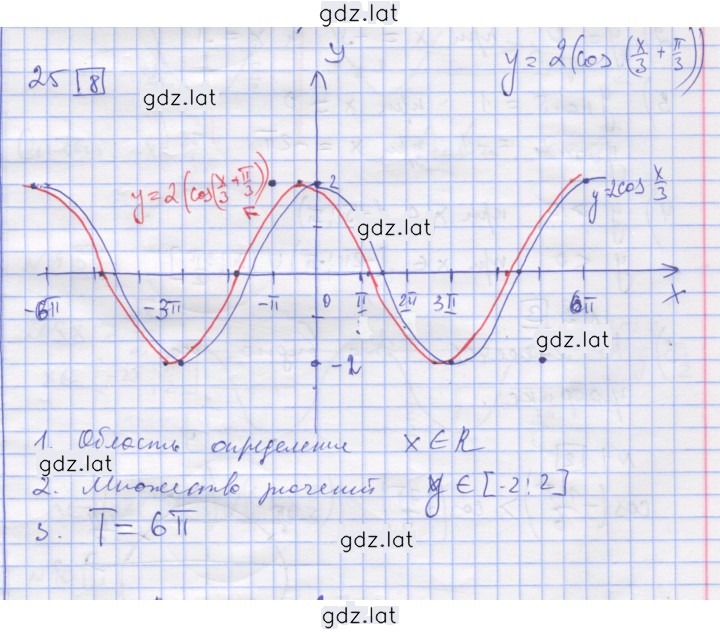 gdz.lat
y
y = 2(cos (x/3 + π/3))
25 8
gdz.lat
y = 2(cos(x/3 + π/3))
2
y=2cos x/3
gdz.lat
-6π -3π -π 0 π 2π 3π 6π x
gdz.lat
-2
1. Область определения x ∈ R
gdz.lat
2. Множество значений y ∈ [-2; 2]
3. T = 6π
gdz.lat
gdz.lat